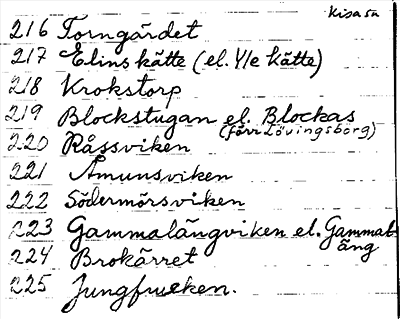 Kisa sn
216 Torngärdet
217 Elins kätte (el. Y/e kätte)
218 Krokstorp
219 Blockstugan el. Blockas
(förr Lövingsborg)
220 Råssviken
221 Åmunsviken
222 Södermörsviken
223 Gammalängviken el. Gammal-
äng
224 Brokärret
225